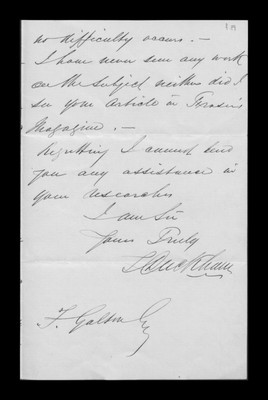 no difficulty occurs. —
I have never seen any work
on the subject neither did I
see your Article in Fraser's
Magazine. —
Regretting I cannot lend
you any assistance in
your researches
I am Sir
Yours Truly
F. Galton Esq